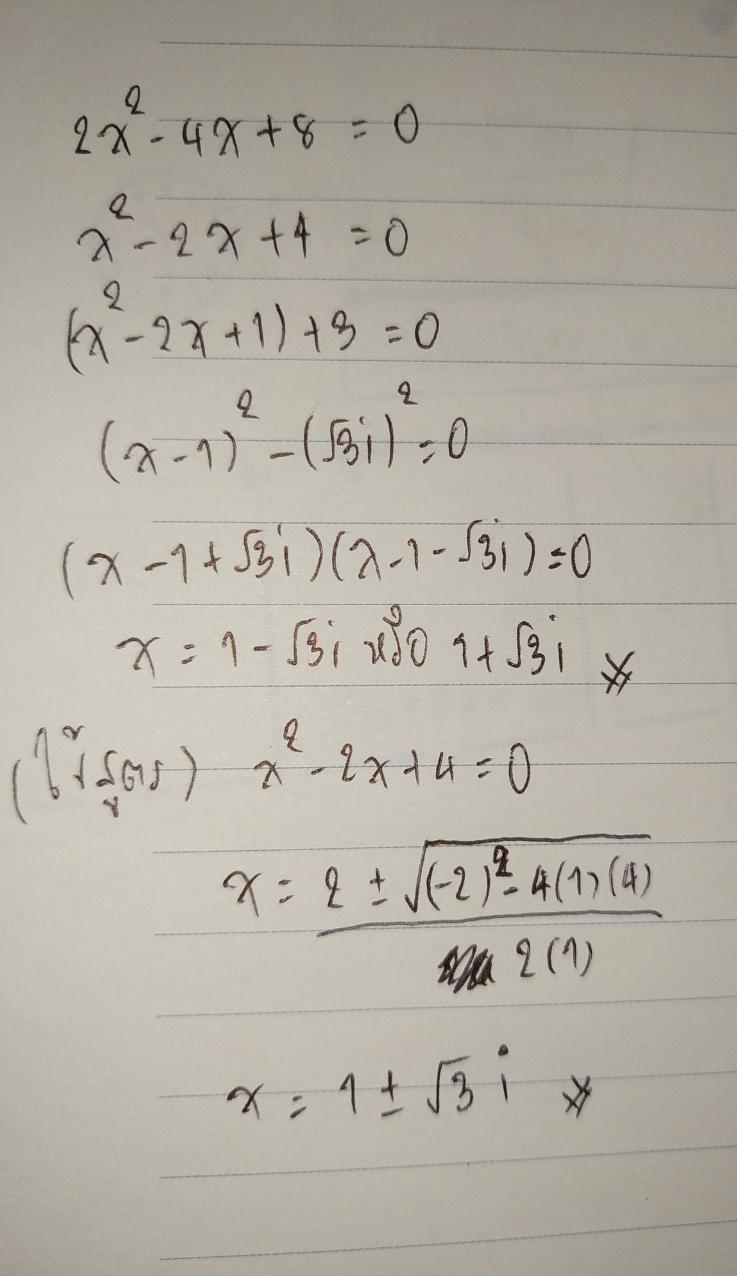 2x² - 4x + 8 = 0
x² - 2x + 4 = 0
(x² - 2x + 1) + 3 = 0
(x - 1)² - (√3i)² = 0
(x - 1 + √3i)(x - 1 - √3i) = 0
x = 1 - √3i หรือ 1 + √3i ※
(ใช้สูตร) x² - 2x + 4 = 0
x = 2 ± √((-2)² - 4(1)(4))
2(1)
x = 1 ± √3 i ※